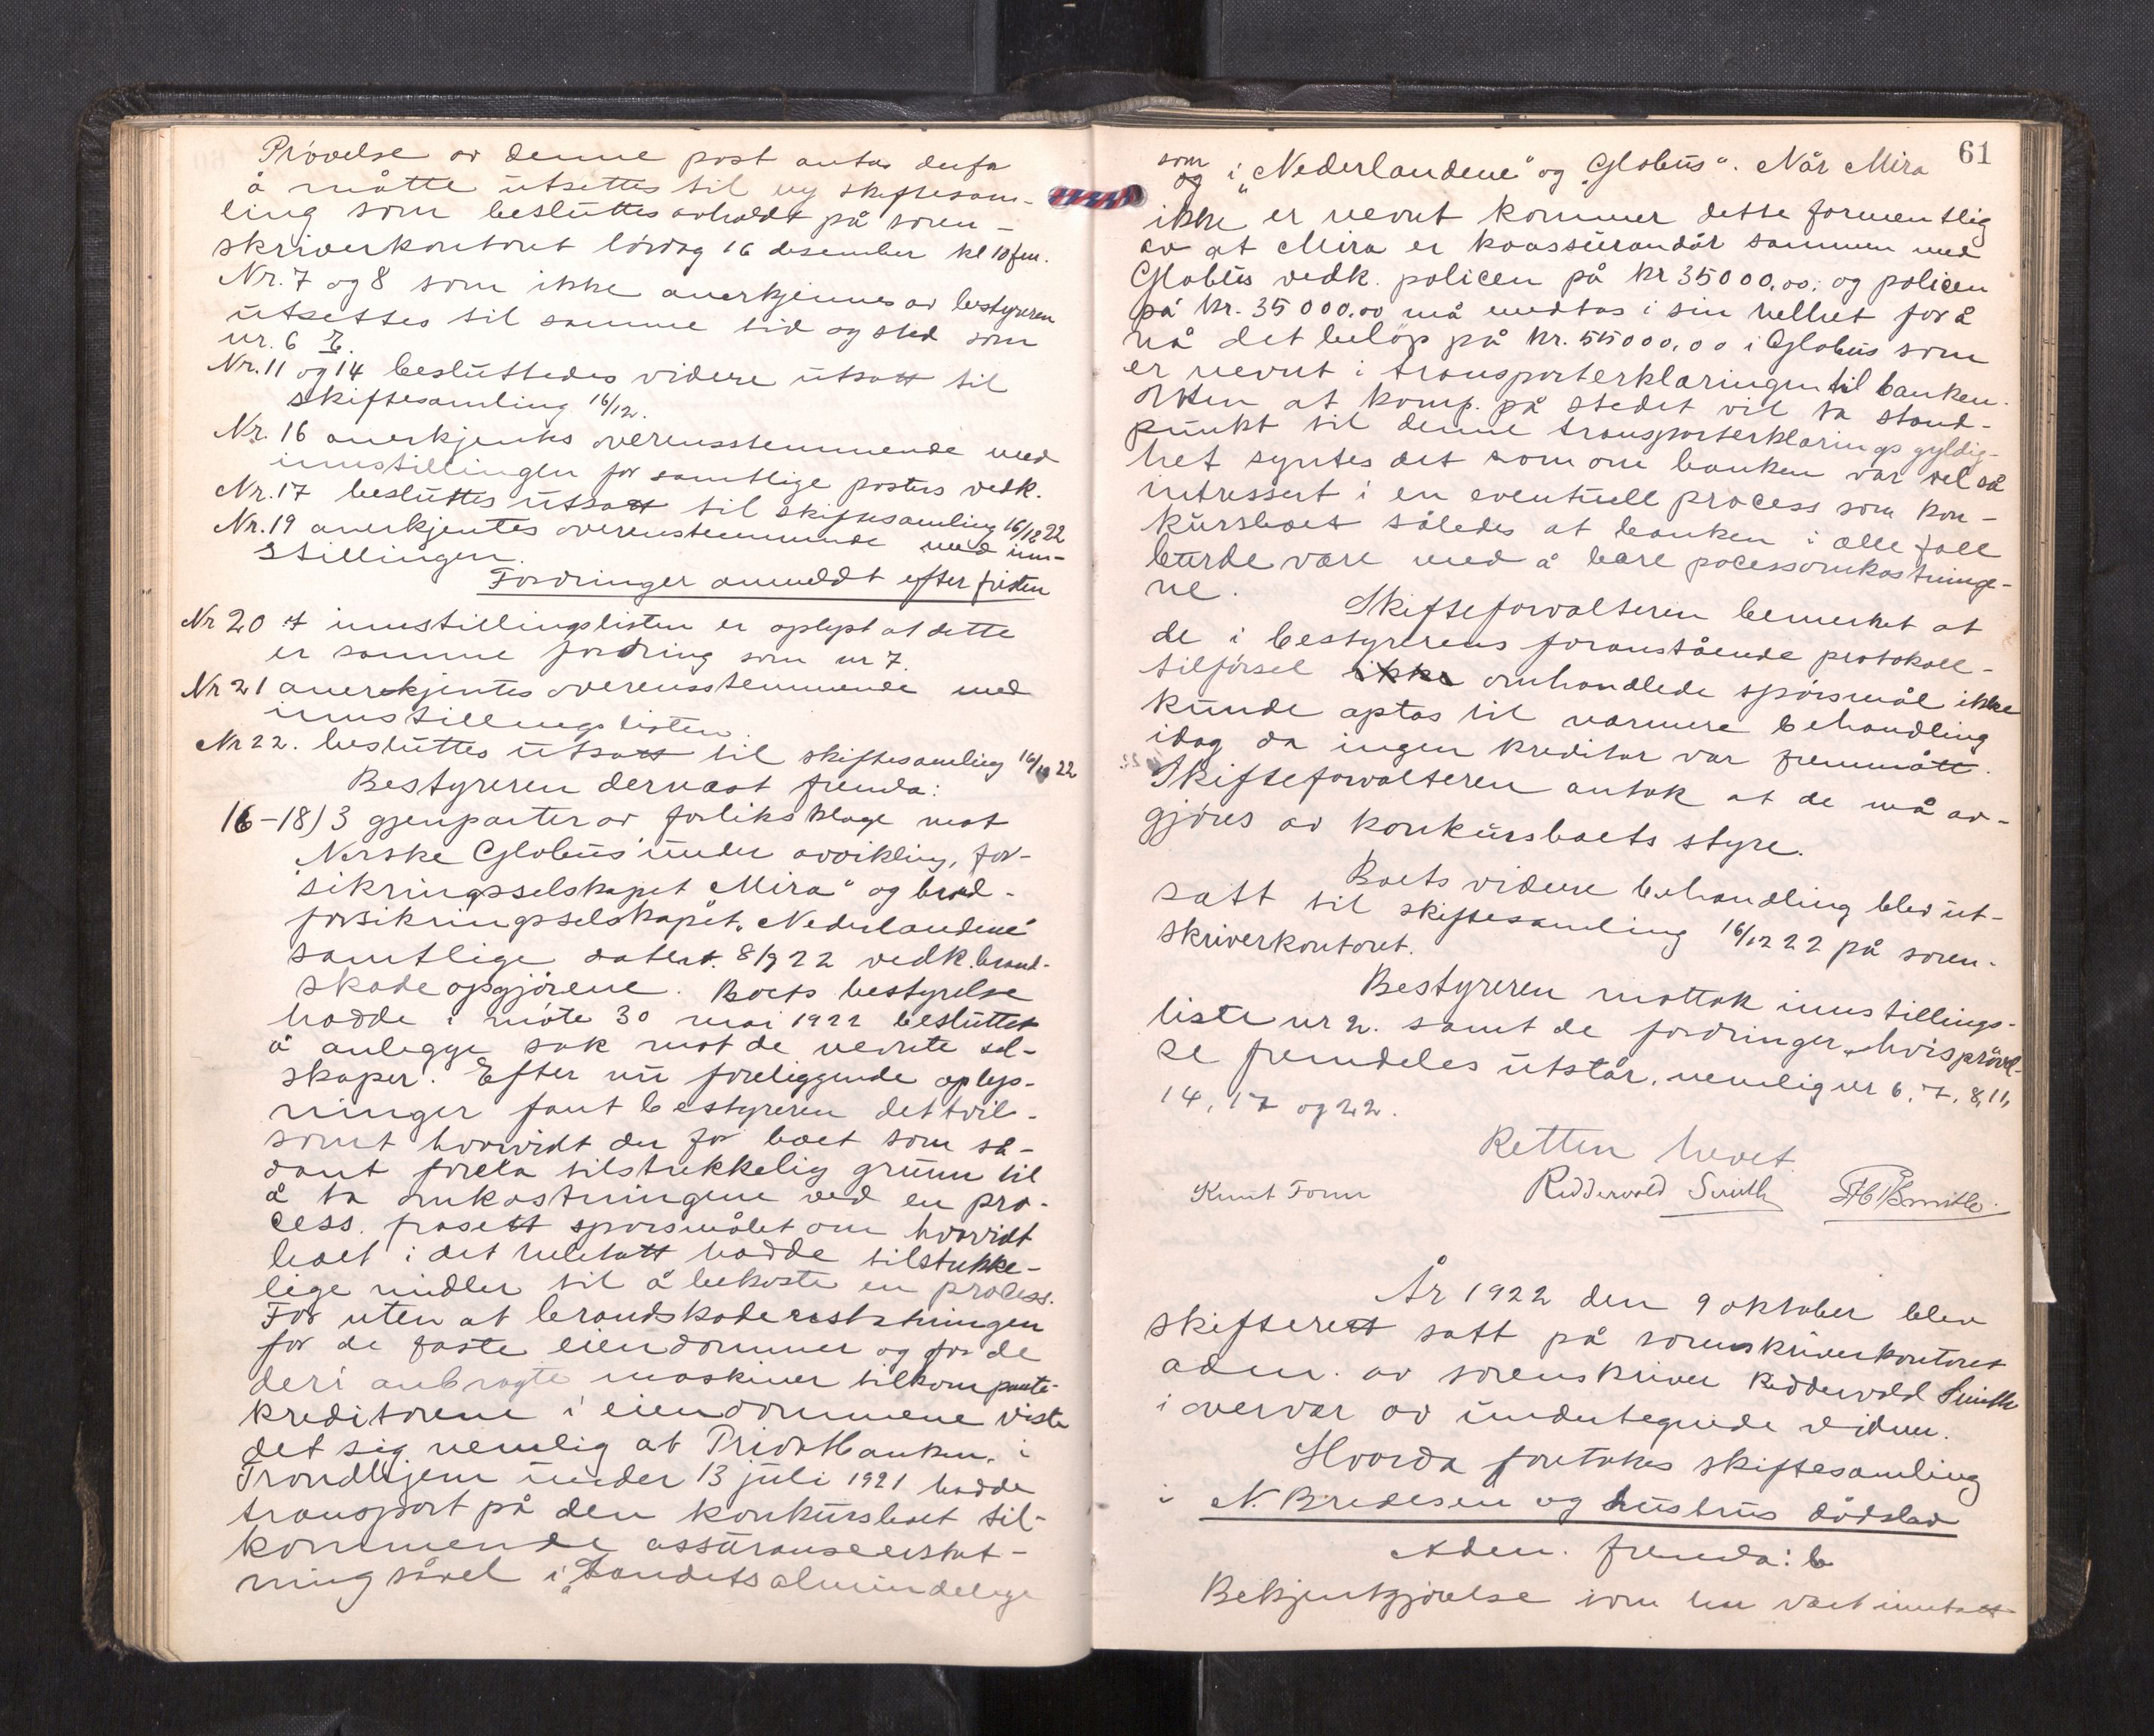 Prøvelse av denne post antas derfor
å måtte utsettes til ny skiftesam-
ling som besluttes avholdt på soren-
skriverkontoret lördag 16 desember kl 10 fm.
Nr. 7 og 8 som ikke anerkjennes av bestyreren
utsettes til samme tid og sted som
nr. 6
Nr. 11 og 14 besluttedes videre utsatt til
skiftesamling 16/12.
Nr. 16 anerkjentes overensstemmende med
innstillingen for samtlige posters vedk.
Nr. 17 besluttes utsatt til skiftesamling 16/12 22
Nr. 19 anerkjentes overenstemmende med inn-
stillingen.
Fordringer anmeldt efter fristen
Nr 20 I innstillingslisten er oplyst at dette
er samme fordring som nr 7.
Nr 21 anerkjentes overensstemmende med
innstillingslisten.
Nr 22. besluttes utsatt til skiftesamling 16/12 22
Bestyreren dernæst fremla:
16-18) 3 gjenparter av forliksklage mot
Norske Globus under avvikling, for-
sikringsselskapet "Mira" og brand-
forsikringsselskapet "Nederlandene"
samtlige datert 8/9 22 vedk. brand-
skadeopgjörene. Boets bestyrelse
hadde i möte 30 mai 1922 besluttet
å anlegge sak mot de nevnte sel-
skaper. Efter nu foreliggende oplys-
ninger fant bestyreren det tvil-
somt hvorvidt der for boet som så-
dant forelå tilstrekkelig grunn til
å ta omkostningene ved en pro-
cess. frasett sporsmålet om hvorvidt
boet i det heletatt hadde tilstrekke-
lige midler til å bekoste en process.
For uten at brandskadeerstatningen
for de faste eiendommer og for de
deri anbragte maskiner tilkom pante-
kreditorene i eiendommene viste
det sig nemlig at Privatbanken i
Trondhjem under 13 juli 1921 hadde
transport på den konkursboet til-
kommende assuranseerstat-
ning såvel i "Landets almindelige
61
som
og i "Nederlandene" og "Globus". Når Mira
ikke er nevnt kommer dette formentlig
av at Mira er koassurandör sammen med
Globus vedk. policen på kr 35000,00; og policen
på kr. 35000,00 må medtas i sin helhet for å
nå det belöp på kr. 55000,00 i Globus som
er nevnt i transporterklæringen til banken.
Uten at komp. på stedet vil ta stand-
punkt til denne transporterklærings gyldig-
het syntes det som om banken var vel så
intressert i en eventuell process som kon-
kursboet således at banken i alle fall
burde være med å bære pocessomkostninge-
ne.
Skifteforvalteren bemerket at
de i bestyrerens foranstående protokoll-
tilförsel ikke omhandlede spörsmål ikke
kunde optas til nærmere behandling
idag da ingen kreditor var fremmött.
Skifteforvalteren antok at de må av-
gjöres av konkursboets styre.
Boets videre behandling blev ut-
satt til skiftesamling 16/12 22 på soren-
skriverkontoret.
Bestyreren mottok innstillings-
liste nr 2. samt de fordringer, hvis prövel-
se fremdeles utstår, nemlig nr 6, 7, 8, 11,
14, 17 og 22.
Retten hevet.
Knut Fonn Ridderwold Smith
År 1922 den 9 oktober blev
skifterett satt på sorenskriverkontoret
adm. av sorenskriver Ridderwold Smith
i overvær av undertegnede vidner.
Hvorda foretokes skiftesamling
i N. Bredesen og hustrus dödsbo
Adm. fremla:
Bekjentgjörelse som har vært inntatt